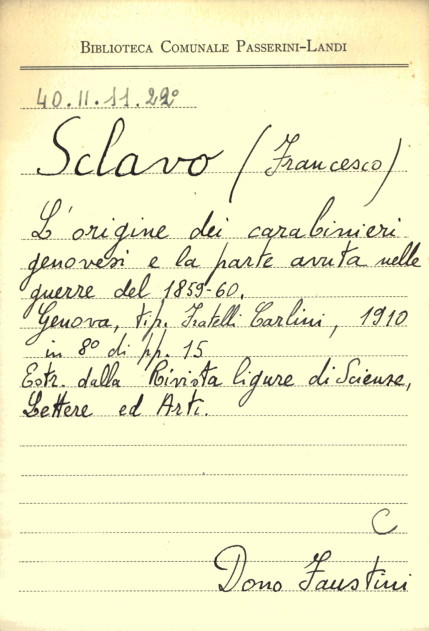 BIBLIOTECA COMUNALE PASSERINI-LANDI
40.II.11.22º
Sclavo (Francesco)
L'origine dei carabinieri
genovesi e la parte avuta nelle
guerre del 1859-60.
Genova, tip. Fratelli Carlini, 1910
in 8º di pp. 15
Estr. dalla Rivista ligure di Sciense,
Lettere ed Arti.
C
Dono Faustini